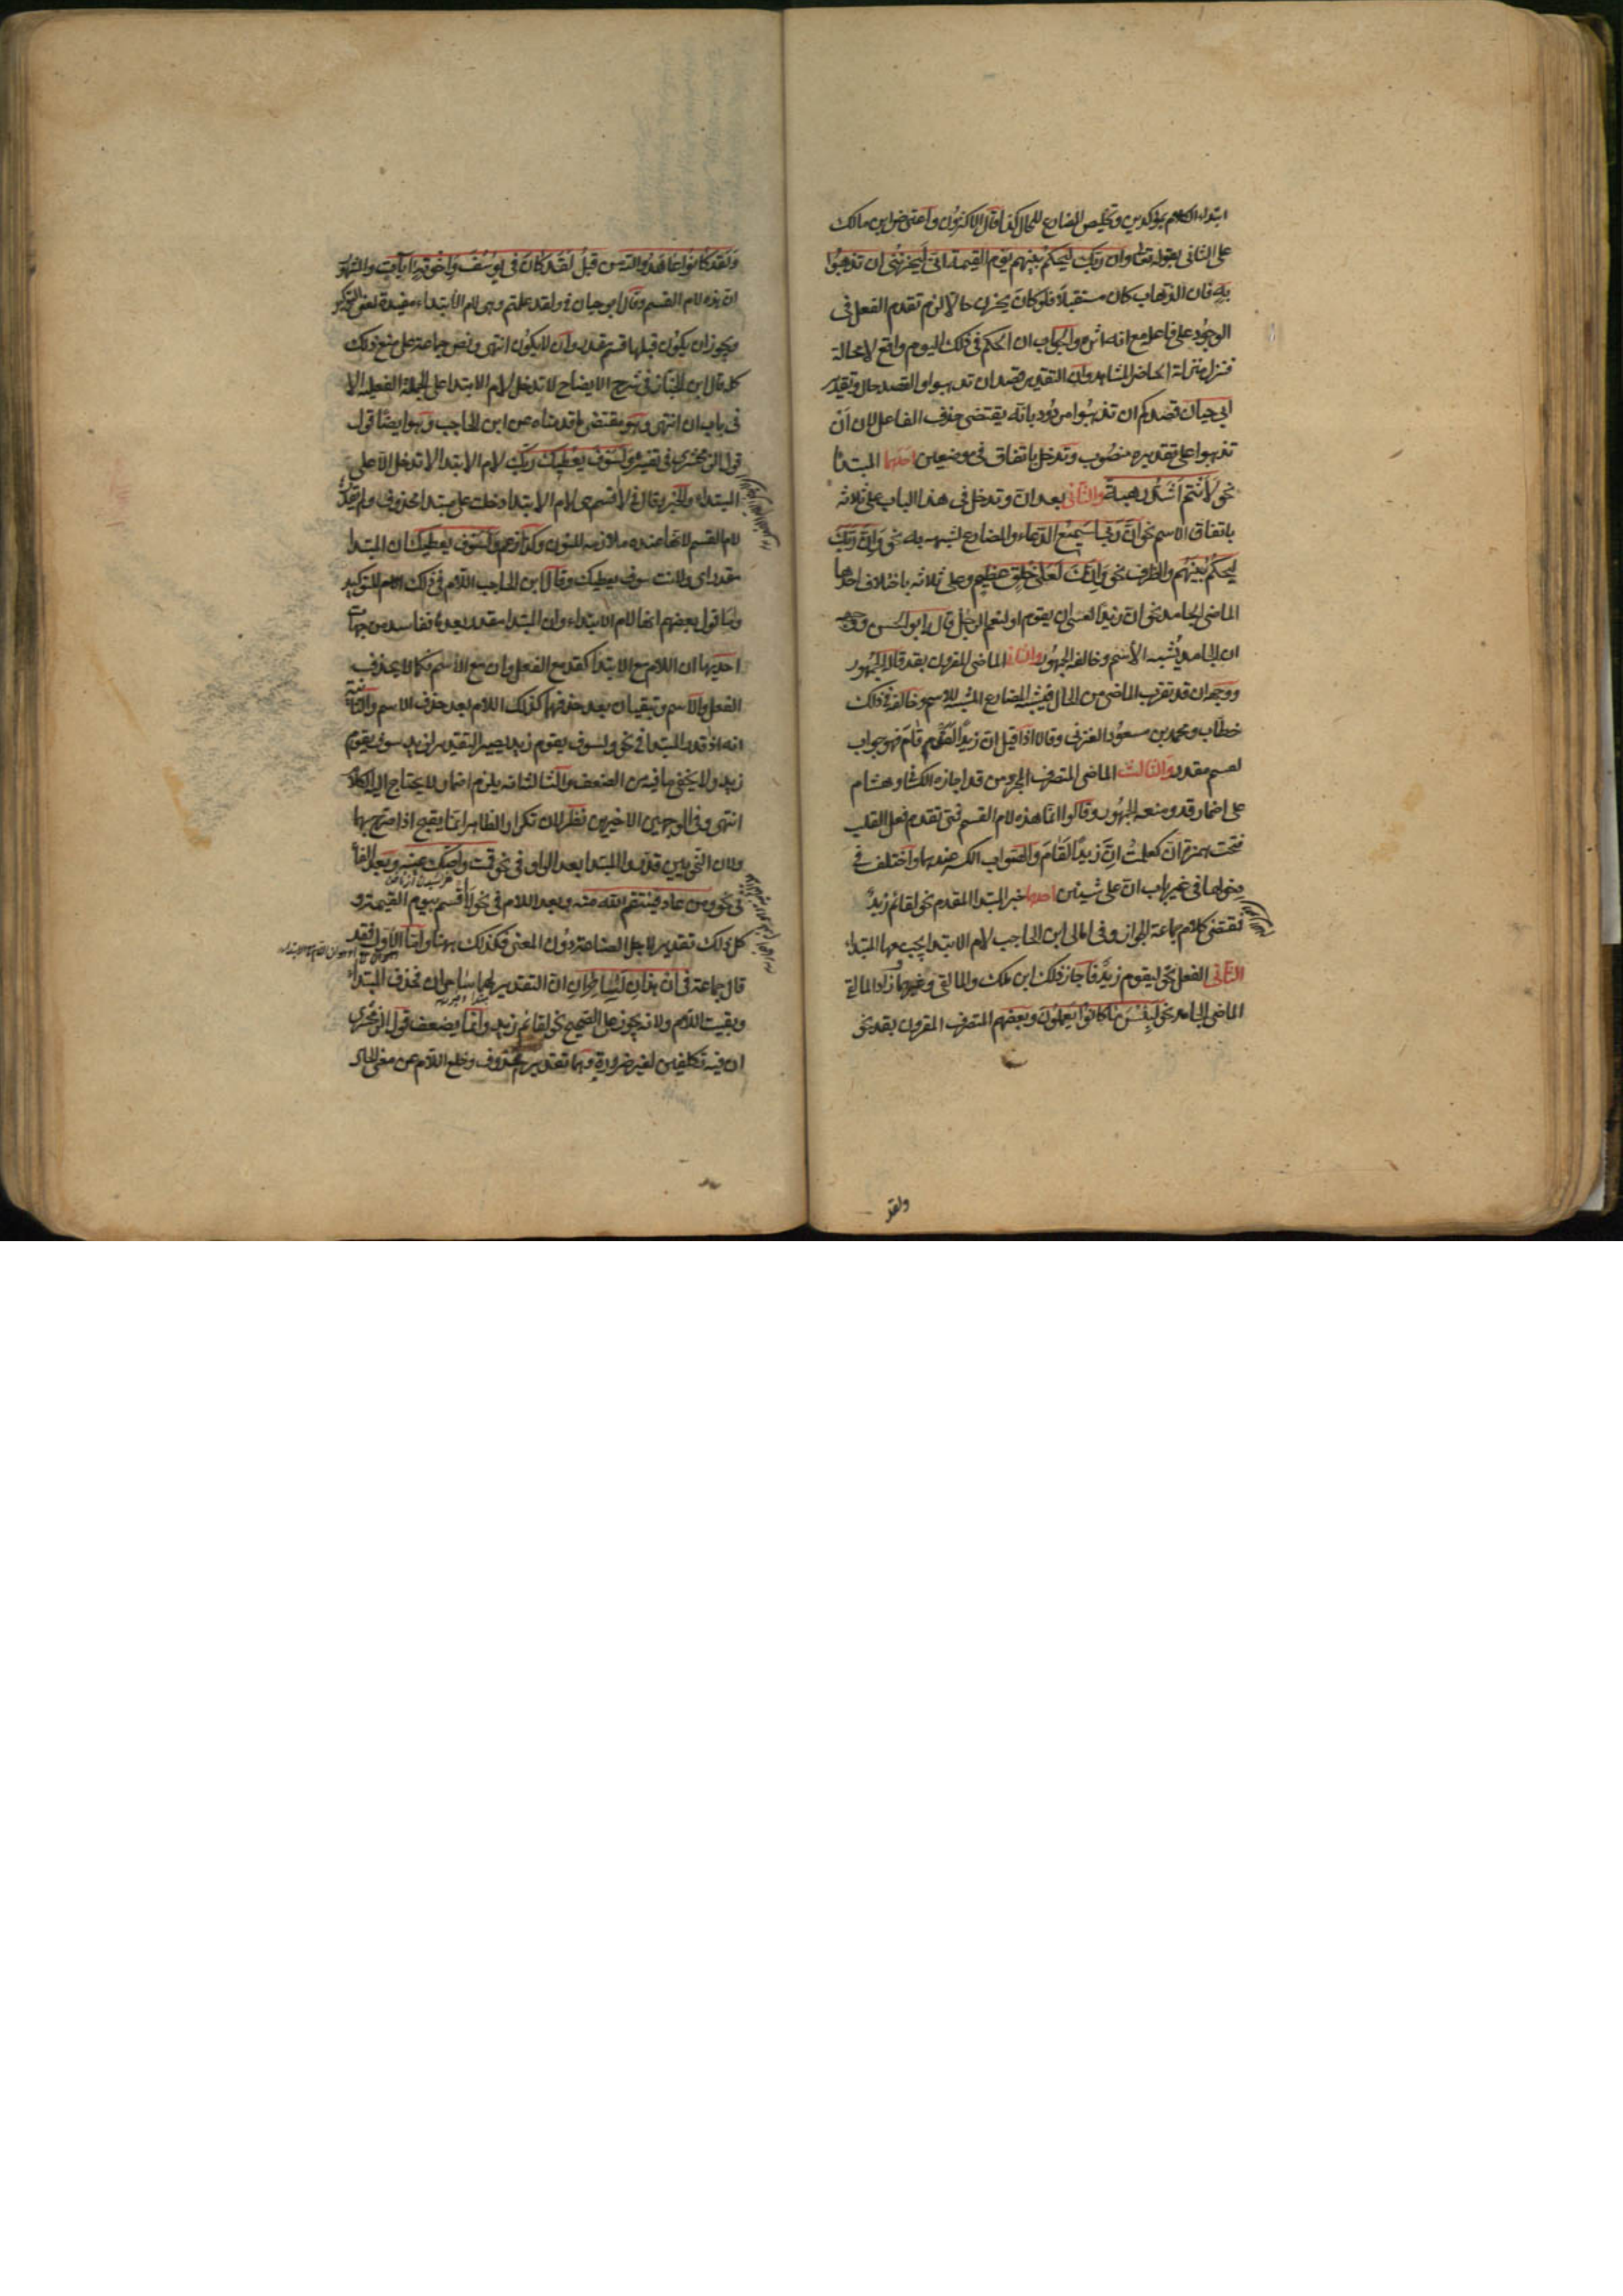 ابتداء الكلام بمؤكدين وتخليص المضارع للحال كذا قال الاكثرون واعترض ابن مالك
على الثانى بقوله تعالى وان ربك ليحكم بينهم يوم القيمة انى ليحزننى ان تذهبوا
به فان الذهاب كان مستقبلا فلو كان يحزن حالا لزم تقدم الفعل فى
الوجود على فاعله مع انه اثره والجواب ان الحكم فى ذلك اليوم واقع لا محالة
فنزل منزلة الحاضر المشاهد وان التقدير قصد ان تذهبوا والقصد حال وتقدير
ابى حيان قصدكم ان تذهبوا مردود بانه يقتضى حذف الفاعل لان ان
تذهبوا على تقديره منصوب وتدخل باتفاق فى موضعين احدهما المبتدأ
نحو لأنتم اشد رهبة والثانى بعد ان وتدخل فى هذا الباب على ثلاثه
باتفاق الاسم نحو ان ربى لسميع الدعاء والمضارع لشبهه به نحو وان ربك
ليحكم بينهم والظرف نحو وانك لعلى خلق عظيم وعلى ثلاثه باختلاف احدها
الماضى الجامد نحو ان زيدا لعسى ان يقوم او لنعم الرجل قال ابو الحسن ووجهه
ان الجامد يشبه الاسم وخالفه الجمهور والثانى الماضى المقرون بقد قاله الجمهور
ووجهه ان قد تقرب الماضى من الحال فيشبه المضارع المشبه للاسم وخالفه فى ذلك
خطاب ومحمد بن مسعود الغزنى وقالا اذا قيل ان زيدا لقد قام فهو جواب
لقسم مقدر والثالث الماضى المتصرف المجرد من قد اجازه الكسائى وهشام
على اضمار قد ومنعه الجمهور وقالوا انما هذه لام القسم فمتى تقدم فعل القلب
فتحت همزة ان كعلمت ان زيدا لقام والصواب الكسر عندهما واختلف فى
دخولها فى غير باب ان على شيئين احدهما خبر المبتدا المقدم نحو لقائم زيد
فمقتضى كلام جماعة الجواز وفى امالى ابن الحاجب لام الابتدا يجب معها المبتدا
الثانى الفعل نحو ليقوم زيد فاجاز ذلك ابن ملك والمالقى وغيرهما زاد المالقى
الماضى الجامد نحو لبئس ما كانوا يعملون وبعضهم المتصرف المقرون بقد نحو
ولقد
ولقد كانوا عاهدوا الله من قبل لقد كان فى يوسف واخوته آيات والمشهور
ان هذه لام القسم وقال ابو حيان فى ولقد علمتم وهى لام الابتداء مفيدة لمعنى التوكيد
ويجوز ان يكون قبلها قسم مقدر وان لا يكون انتهى ونص جماعة على منع ذلك
كله قال ابن الخباز فى شرح الايضاح لا تدخل لام الابتدا على الجملة الفعلية الا
فى باب ان انتهى وهو مقتضى ما قدمناه عن ابن الحاجب وهو ايضا قول
قول الزمخشرى فى تفسير ولسوف يعطيك ربك لام الابتدا لا تدخل الا على
المبتداء والخبر وقال فى لأقسم هى لام الابتدا دخلت على مبتدا محذوف ولم يقدرها
لام القسم لانها عنده ملازمة للنون وكذا زعم فى ولسوف يعطيك ان المبتدا
مقدر اى ولانت سوف يعطيك وقال ابن الحاجب اللام فى ذلك لام التوكيد
واما قول بعضهم انها لام الابتداء وان المبتدا مقدر بعدها ففاسد من جهات
احديها ان اللام مع الابتدا كقد مع الفعل وان مع الاسم فكما لا يحذف
الفعل والاسم وتبقيان بعد حذفهما كذلك اللام بعد حذف الاسم والثانية
انه اذ قدر المبتدا فى نحو لسوف يقوم زيد يصير التقدير لزيد سوف يقوم
زيد ولا يخفى ما فيه من الضعف والثالثة انه يلزم اضمار لا يحتاج اليه الكلام
انتهى وفى الوجهين الاخيرين نظر لان تكرار الظاهر انما يقبح اذا صرح بهما
ولان النحويين قدروا المبتدا بعد الواو فى نحو قمت واصك عينه وبعد الفاء
فى نحو ومن عاد فينتقم الله منه وبعد اللام فى نحو لأقسم بيوم القيمة و
كل ذلك تقدير لاجل الصناعة دون المعنى فكذلك ههنا واما الاول فقد
قال جماعة فى ان هذان لساحران ان التقدير لهما ساحران فحذف المبتداء
وبقيت اللام ولانه يجوز على الصحيح نحو لقائم زيد وانما يضعف قول الزمخشرى
ان فيه تكلفين لغير ضرورة وهما تقدير محذوف وخلع اللام عن معنى الحال